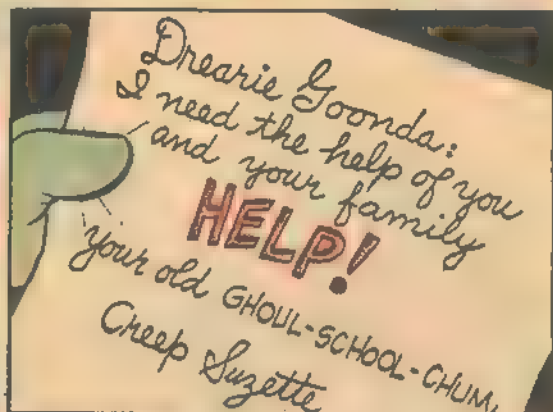 Drearie Goonda:
I need the help of you
and your family
HELP!
your old GHOUL-SCHOOL-CHUM,
Creep Suzette